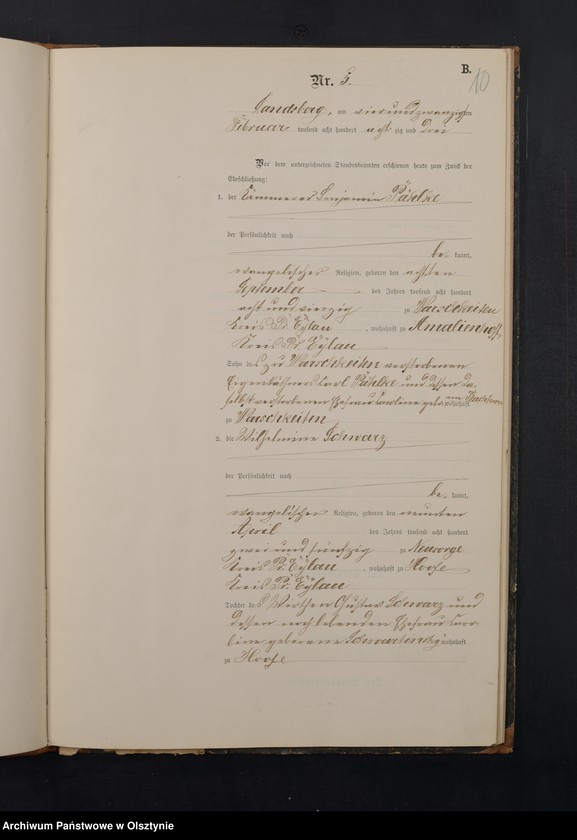 B.
10
Nr. 5.
Landsberg, am vierundzwanzigsten
Februar tausend acht hundert acht zig und drei
Vor dem unterzeichneten Standesbeamten erschienen heute zum Zweck der
Eheschließung:
1. der Kämmerer Benjamin Pählke
der Persönlichkeit nach
be kannt,
evangelischer Religion, geboren den achten
September des Jahres tausend acht hundert
acht und vierzig zu Warschkeiten
Kreis Pr. Eylau, wohnhaft zu Amalienhoff,
Kreis Pr. Eylau
Sohn des zu Warschkeiten verstorbenen
Eigenkäthners Carl Pählke und dessen da-
selbst verstorbenen Ehefrau Caroline geborenen
zu Warschkeiten
2. die Wilhelmine Schwarz
der Persönlichkeit nach
be kannt,
evangelischer Religion, geboren den neunten
April des Jahres tausend acht hundert
zwei und fünfzig zu Neusorge
Kreis Pr. Eylau, wohnhaft zu Hoofe
Kreis Pr. Eylau
Tochter des Wirthen Gustav Schwarz und
dessen noch lebenden Ehefrau Caro-
line geborene wohnhaft
zu Hoofe
Archiwum Państwowe w Olsztynie